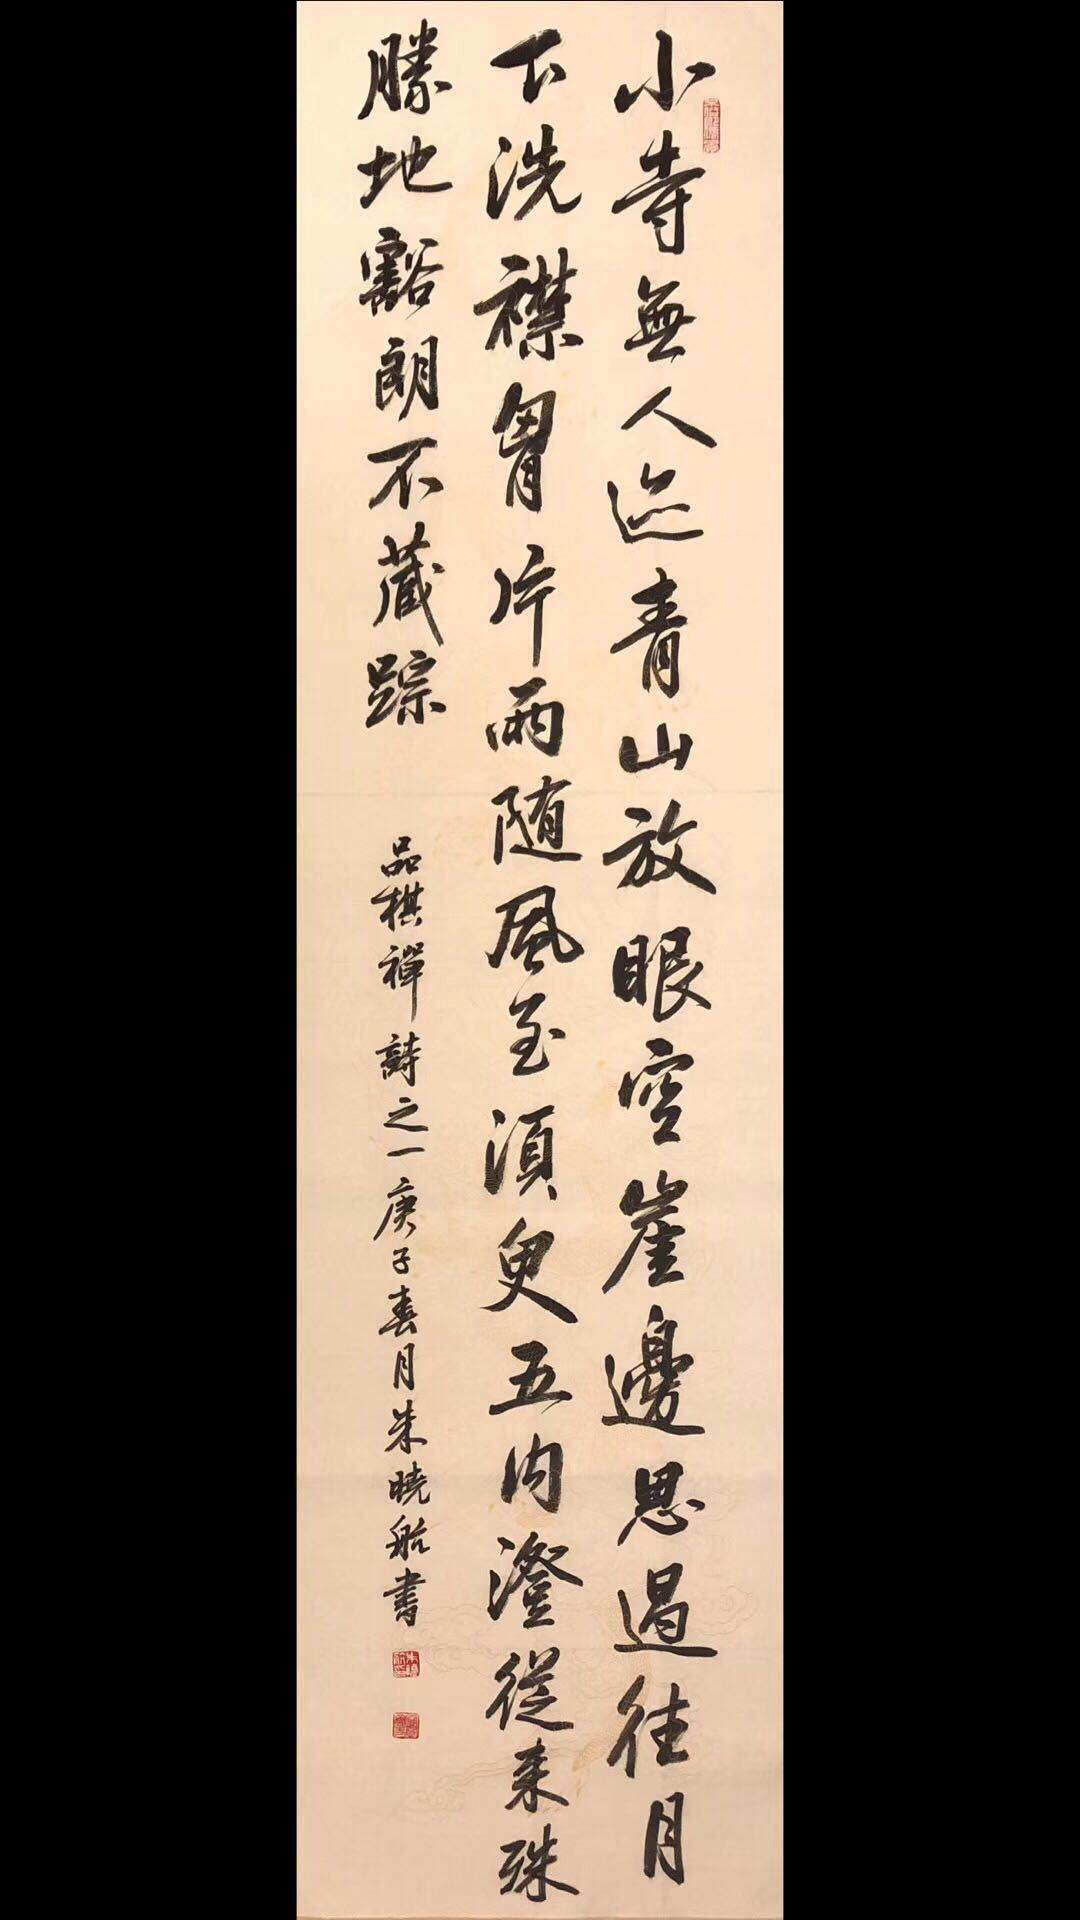 小寺無人迹青山放眼空崖邊思過往月
下洗襟胷片雨随風至須臾五内澄從来殊
勝地豁朗不藏踪
品棋禪詩之一庚子春月朱曉航書